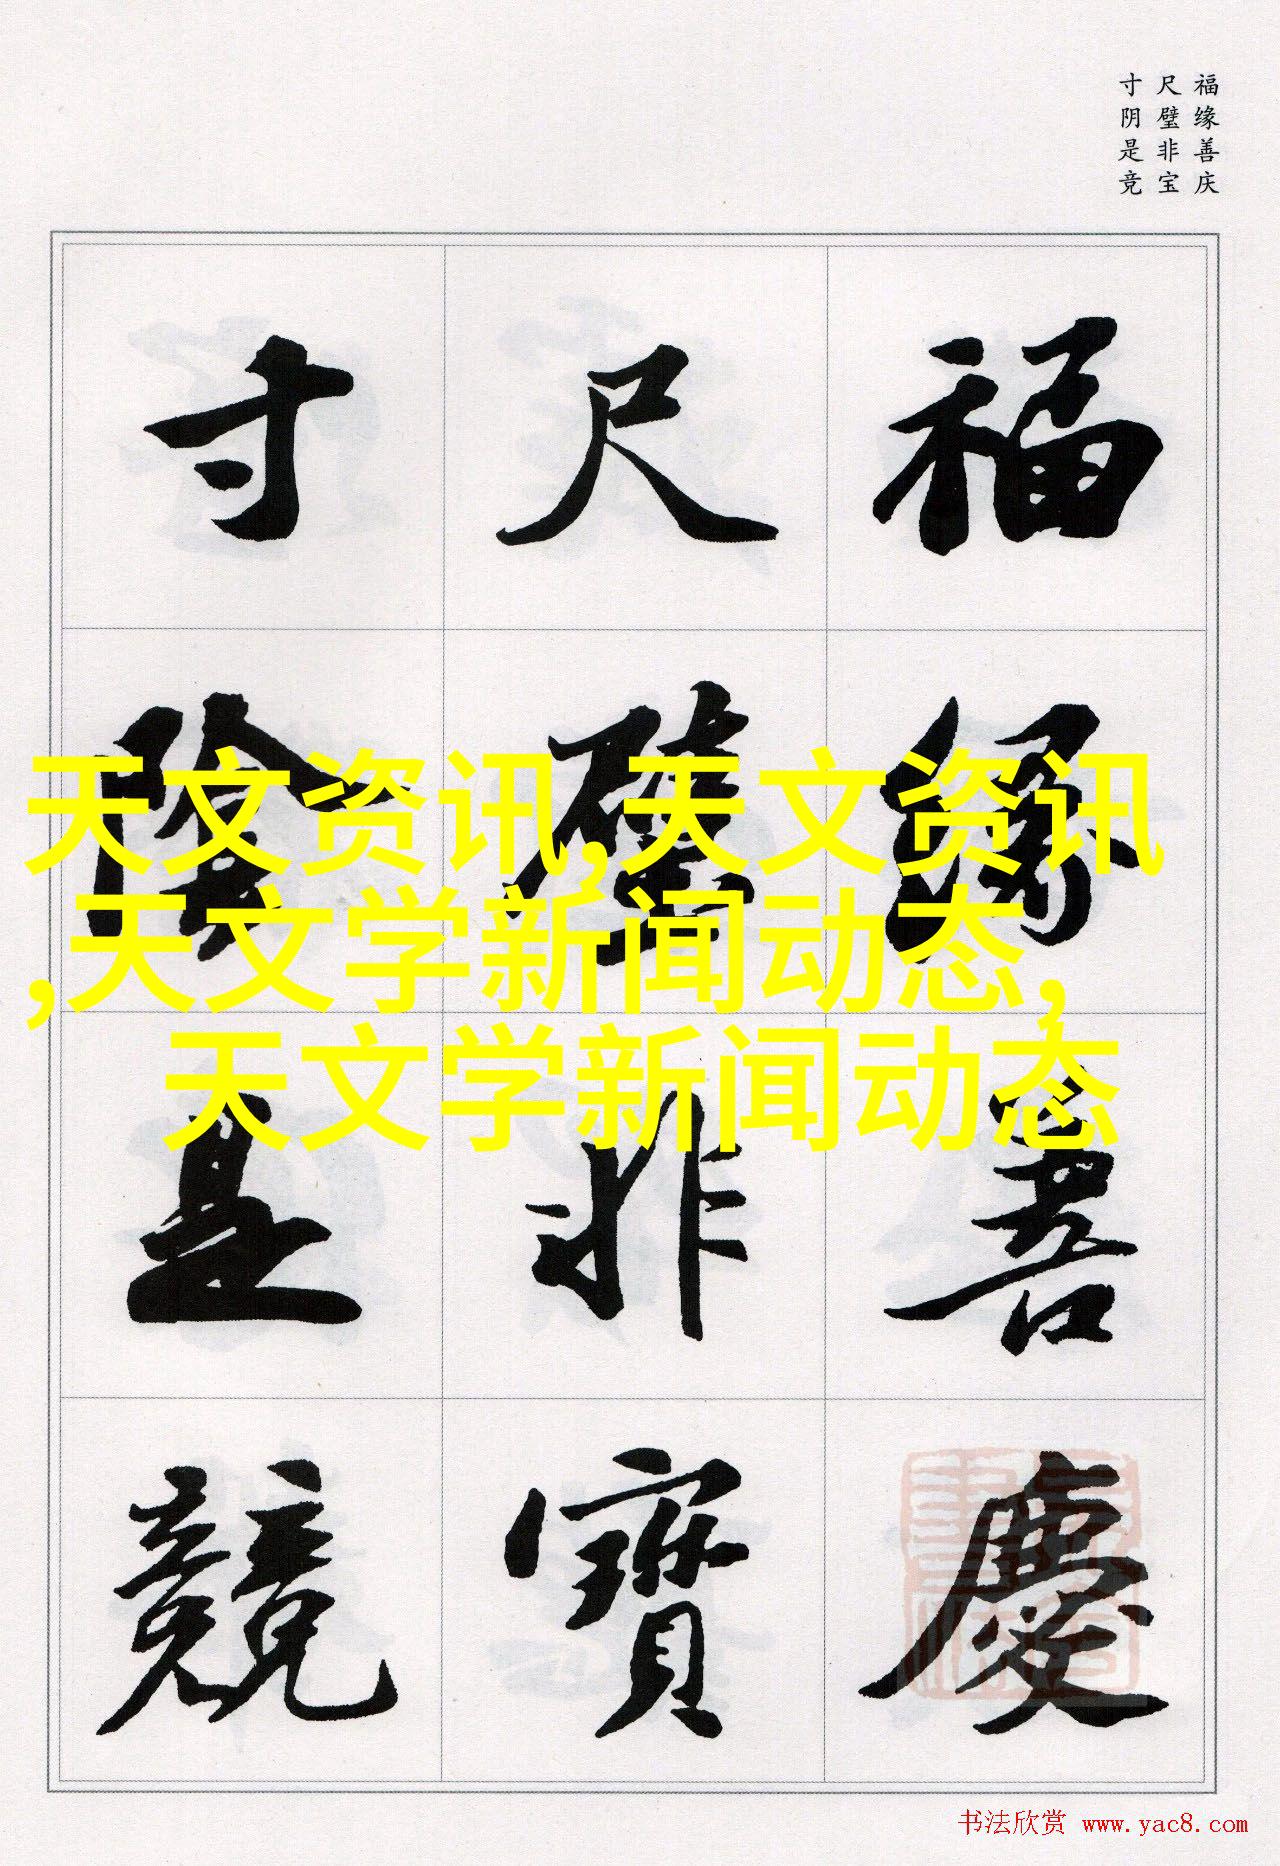 福缘善庆
尺璧非宝
寸阴是竞
福緣善慶
尺璧非寶
寸陰是競
天文资讯,天文资讯
,天文学新闻动态,
天文学新闻动态
书法欣赏 www.yac8.com